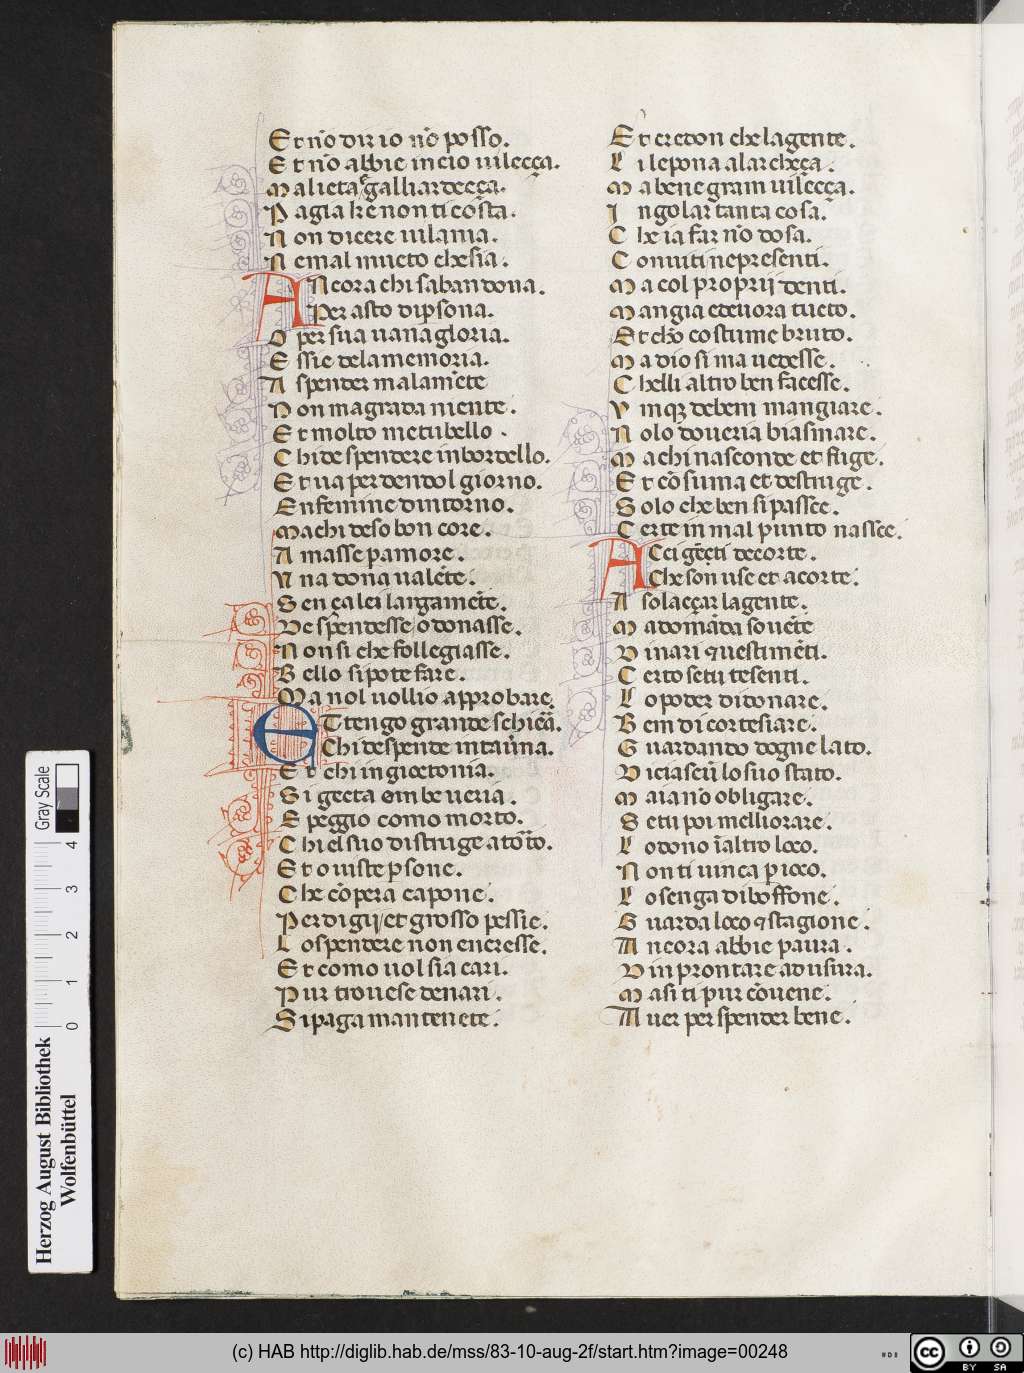 Et nō dir io nō posso.
Et nō abbie in cio uilecça.
Ma lieta galliardecça.
Pagia ke non ti costa.
Non dicere uilania.
Ne mal mucto che sia.
ANcora chi sabandona.
Per asto di psona.
O per sua uana gloria.
Essie dela memoria.
A spender malamēte
Non magrada niente.
Et molto me tu bello.
Chi de spendere in bordello.
Et ua perdendol giorno.
En femine dintorno.
Ma chi de so bon core.
Amasse p amore.
Una dona ualēte.
Sença lei largamēte.
De spendesse o donasse.
Non si che follegiasse.
Bello si pote fare.
Ma nol uollio approbare.
ET tengo grande schiēa.
Chi despende in tauna.
Et chi in gioctonia.
Si gecta om beueria.
E peggio como morto.
Chi el suo distruge a torto.
Et o uiste psone.
Che cōpera capone.
Perdigij et grosso pessie.
Lo spendere non encresse.
Et como uol sia cari.
Pur trouese denari.
Si paga mantenete.
Et credon che la gente.
Li lepona a larchecça.
Ma bene gram uilecça.
Ingolar tanta cosa.
Che ia far nō dosa.
Conuiti ne presenti.
Ma col proprij denti.
Mangia e deuora tucto.
Et ecko costume bruto.
Ma dio si ma uedesse.
Chelli altro ben facesse.
Vmq₃ deben mangiare.
Nolo doueria biasmare.
Ma chi nasconde et fuge.
Et cōsuma et destruge.
Solo che ben si passce.
Certe in mal punto nassce.
ACci gēti de corte.
Che son use et acorte.
A solaççar la gente.
Ma domāda souēte
Dinari et uestimēti.
Certo se tu te senti.
Lo poder di donare.
Bem di cortesiare.
Guardando dogne lato.
Di ciascū lo suo stato.
Ma ia nō obligare.
Se tu poi melliorare.
Lo dono ī altro loco.
Non ti uinca p ioco.
Losenga di boffone.
Guarda loco et stagione.
Ancora abbie paura.
Dinprontare ad usura.
Ma si ti pur cōuene.
Auer per spender bene.
Herzog August Bibliothek
Wolfenbüttel
0 1 2 3 4
Gray Scale
(c) HAB http://diglib.hab.de/mss/83-10-aug-2f/start.htm?image=00248
cc BY SA